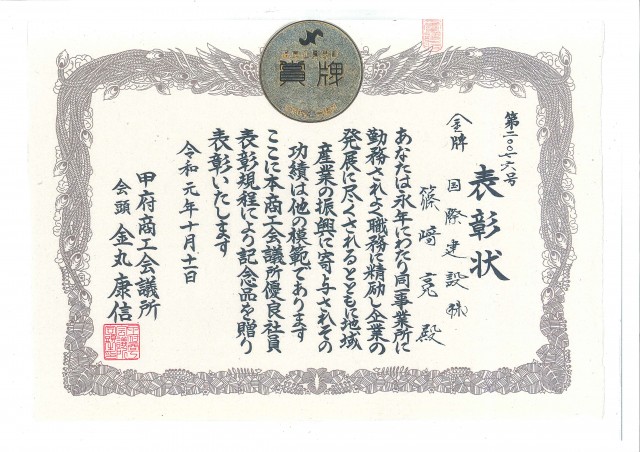 賞牌
第二〇七六号
表彰状
金牌
国際建設㈱
篠﨑亮殿
あなたは永年にわたり同一事業所に
勤務されよく職務に精励し企業の
発展に尽くされるとともに地域
産業の振興に寄与されその
功績は他の模範であります
ここに本商工会議所優良社員
表彰規程により記念品を贈り
表彰いたします
令和元年十月十一日
甲府商工会議所
会頭 金丸康信